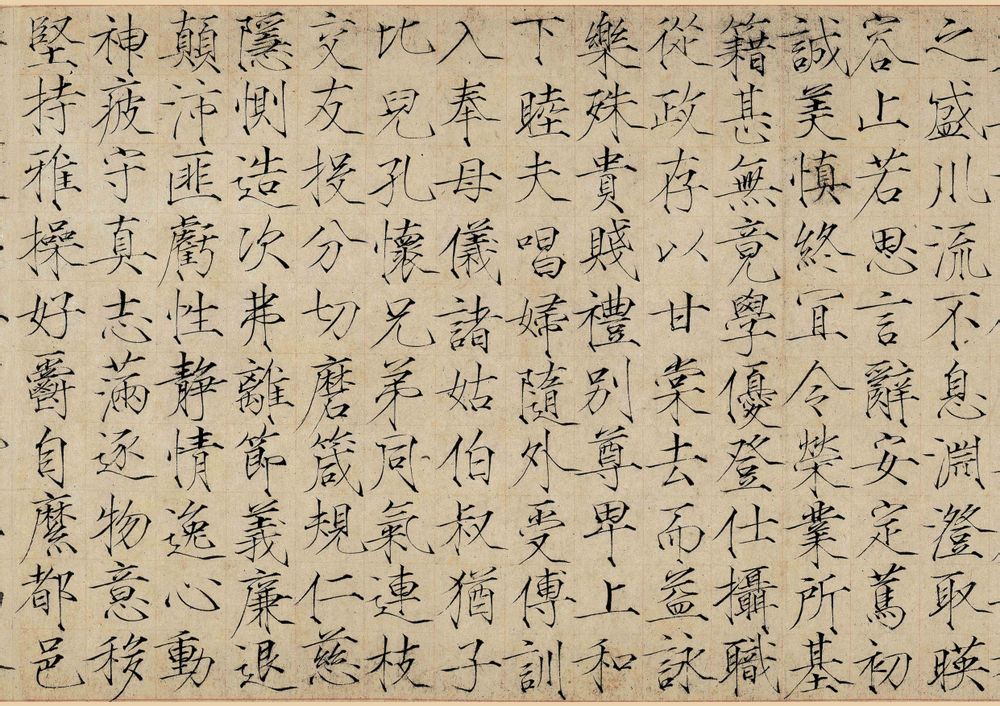 之盛川流不息淵澄取暎
容止若思言辭安定篤初
誠美慎終宜令榮業所基
籍甚無竟學優登仕攝職
從政存以甘棠去而益詠
樂殊貴賤禮別尊卑上和
下睦夫唱婦隨外受傅訓
入奉母儀諸姑伯叔猶子
比兒孔懷兄弟同氣連枝
交友投分切磨箴規仁慈
隱惻造次弗離節義廉退
顛沛匪虧性靜情逸心動
神疲守真志滿逐物意移
堅持雅操好爵自縻都邑